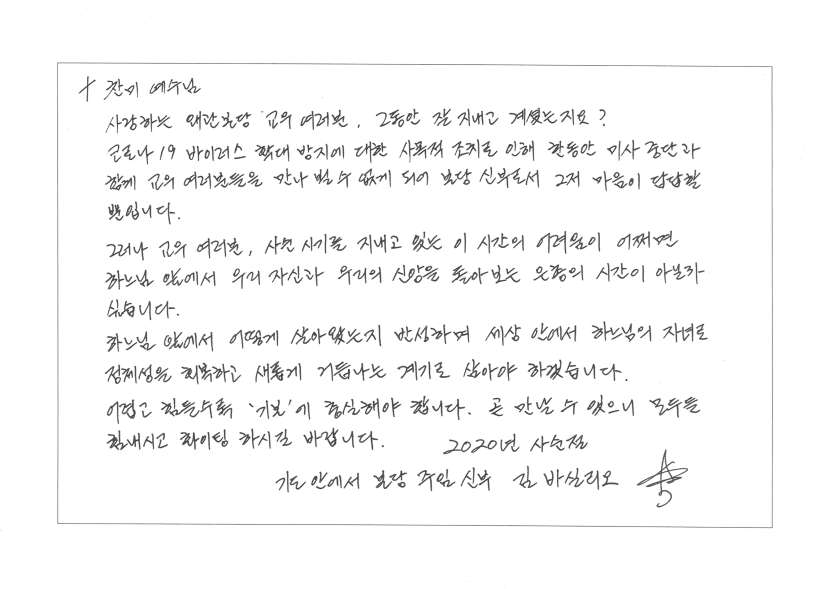 + 찬미 예수님
사랑하는 왜관본당 교우 여러분, 그동안 잘 지내고 계셨는지요?
코로나 19 바이러스 확대 방지에 대한 사목적 조치로 인해 한동안 미사 중단과
함께 교우 여러분들을 만나 뵐 수 없게 되어 본당 신부로서 그저 마음이 답답할
뿐입니다.
그러나 교우 여러분, 사순 시기를 지내고 있는 이 시간의 어려움이 어쩌면
하느님 앞에서 우리 자신과 우리의 신앙을 돌아보는 은총의 시간이 아닐까
싶습니다.
하느님 앞에서 어떻게 살아왔는지 반성하며 세상 안에서 하느님의 자녀로
정체성을 회복하고 새롭게 거듭나는 계기로 삼아야 하겠습니다.
어렵고 힘들수록 '기본'에 충실해야 합니다. 곧 만날 수 있으니 모두들
힘내시고 화이팅 하시길 바랍니다. 2020년 사순절
기도 안에서 본당 주임 신부 김 바실리오